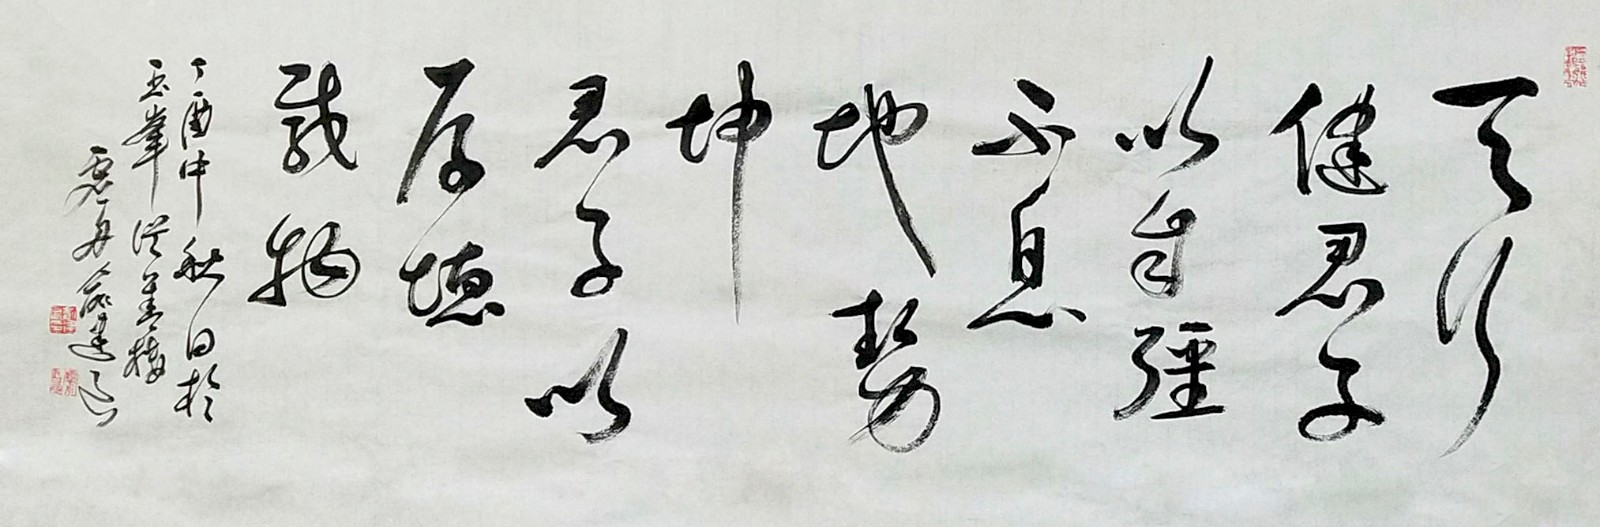 天行
健君子
以自彊
不息
地勢
坤
君子以
厚德
載物
丁酉中秋日於
玉峯